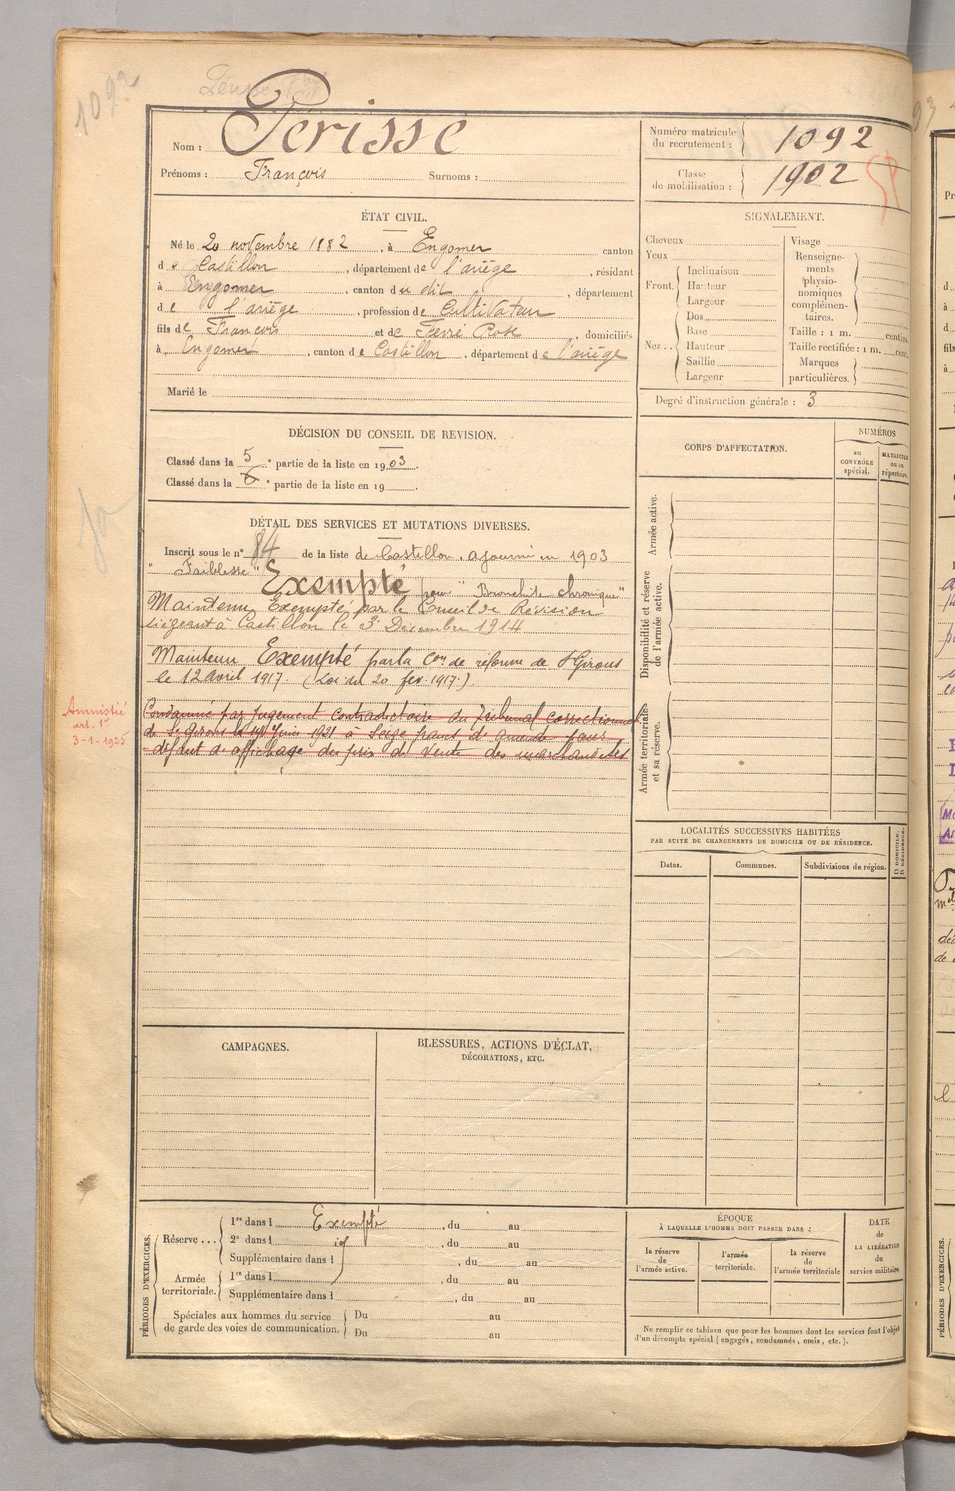 1092
Nom : Périsse
Prénoms : François Surnoms :
Numéro matricule du recrutement : 1092
Classe de mobilisation : 1902
58
ÉTAT CIVIL.
Né le 20 novembre 1882, à Engomer canton
de Castillon, département de l'ariège, résidant
à Engomer, canton du dit, département
de l'ariège, profession de Cultivateur
fils de François et de Rose, domiciliés
à Engomer, canton de Castillon, département de l'ariège
Marié le
SIGNALEMENT.
Cheveux
Yeux
Front. Inclinaison
Hauteur
Largeur
Nez.. Dos
Base
Hauteur
Saillie
Largeur
Visage
Renseignements physionomiques complémentaires.
Taille : 1 m. centim.
Taille rectifiée : 1 m. cent.
Marques particulières.
Degré d'instruction générale : 3
DÉCISION DU CONSEIL DE REVISION.
Classé dans la 5e partie de la liste en 1903
Classé dans la 6e partie de la liste en 19
DÉTAIL DES SERVICES ET MUTATIONS DIVERSES.
Inscrit sous le n° 84 de la liste de Castillon. ajourné en 1903
"Faiblesse" Exempté pour "Bronchite chronique"
Maintenu Exempté par le Conseil de Révision
siégeant à Castillon le 3 Décembre 1914
Maintenu Exempté par la Com de réforme de St Girons
le 12 avril 1917. (Loi du 20 fév. 1917.)
Amnistié
art. 1er
3-1-1925
Condamné par jugement contradictoire du Tribunal correctionnel
de St Girons le Juin 1921 à Seize francs d'amende pour
défaut d'affichage du prix de vente des marchandises
CORPS D'AFFECTATION.
NUMÉROS
au contrôle spécial.
matricule ou au répertoire.
Armée active.
Disponibilité et réserve de l'armée active.
Armée territoriale et sa réserve.
LOCALITÉS SUCCESSIVES HABITÉES
PAR SUITE DE CHANGEMENTS DE DOMICILE OU DE RÉSIDENCE.
Dates. Communes. Subdivisions de région. D DOMICILE. R RÉSIDENCE.
CAMPAGNES.
BLESSURES, ACTIONS D'ÉCLAT,
DÉCORATIONS, ETC.
PÉRIODES D'EXERCICES.
Réserve... 1re dans l Exempté, du au
2e dans l id, du au
Supplémentaire dans l, du au
Armée territoriale. 1re dans l, du au
Supplémentaire dans l, du au
Spéciales aux hommes du service Du au
de garde des voies de communication. Du au
ÉPOQUE
À LAQUELLE L'HOMME DOIT PASSER DANS :
la réserve de l'armée active.
l'armée territoriale.
la réserve de l'armée territoriale
DATE
de
LA LIBÉRATION
du
service militaire.
Ne remplir ce tableau que pour les hommes dont les services font l'objet
d'un décompte spécial (engagés, condamnés, omis, etc.).